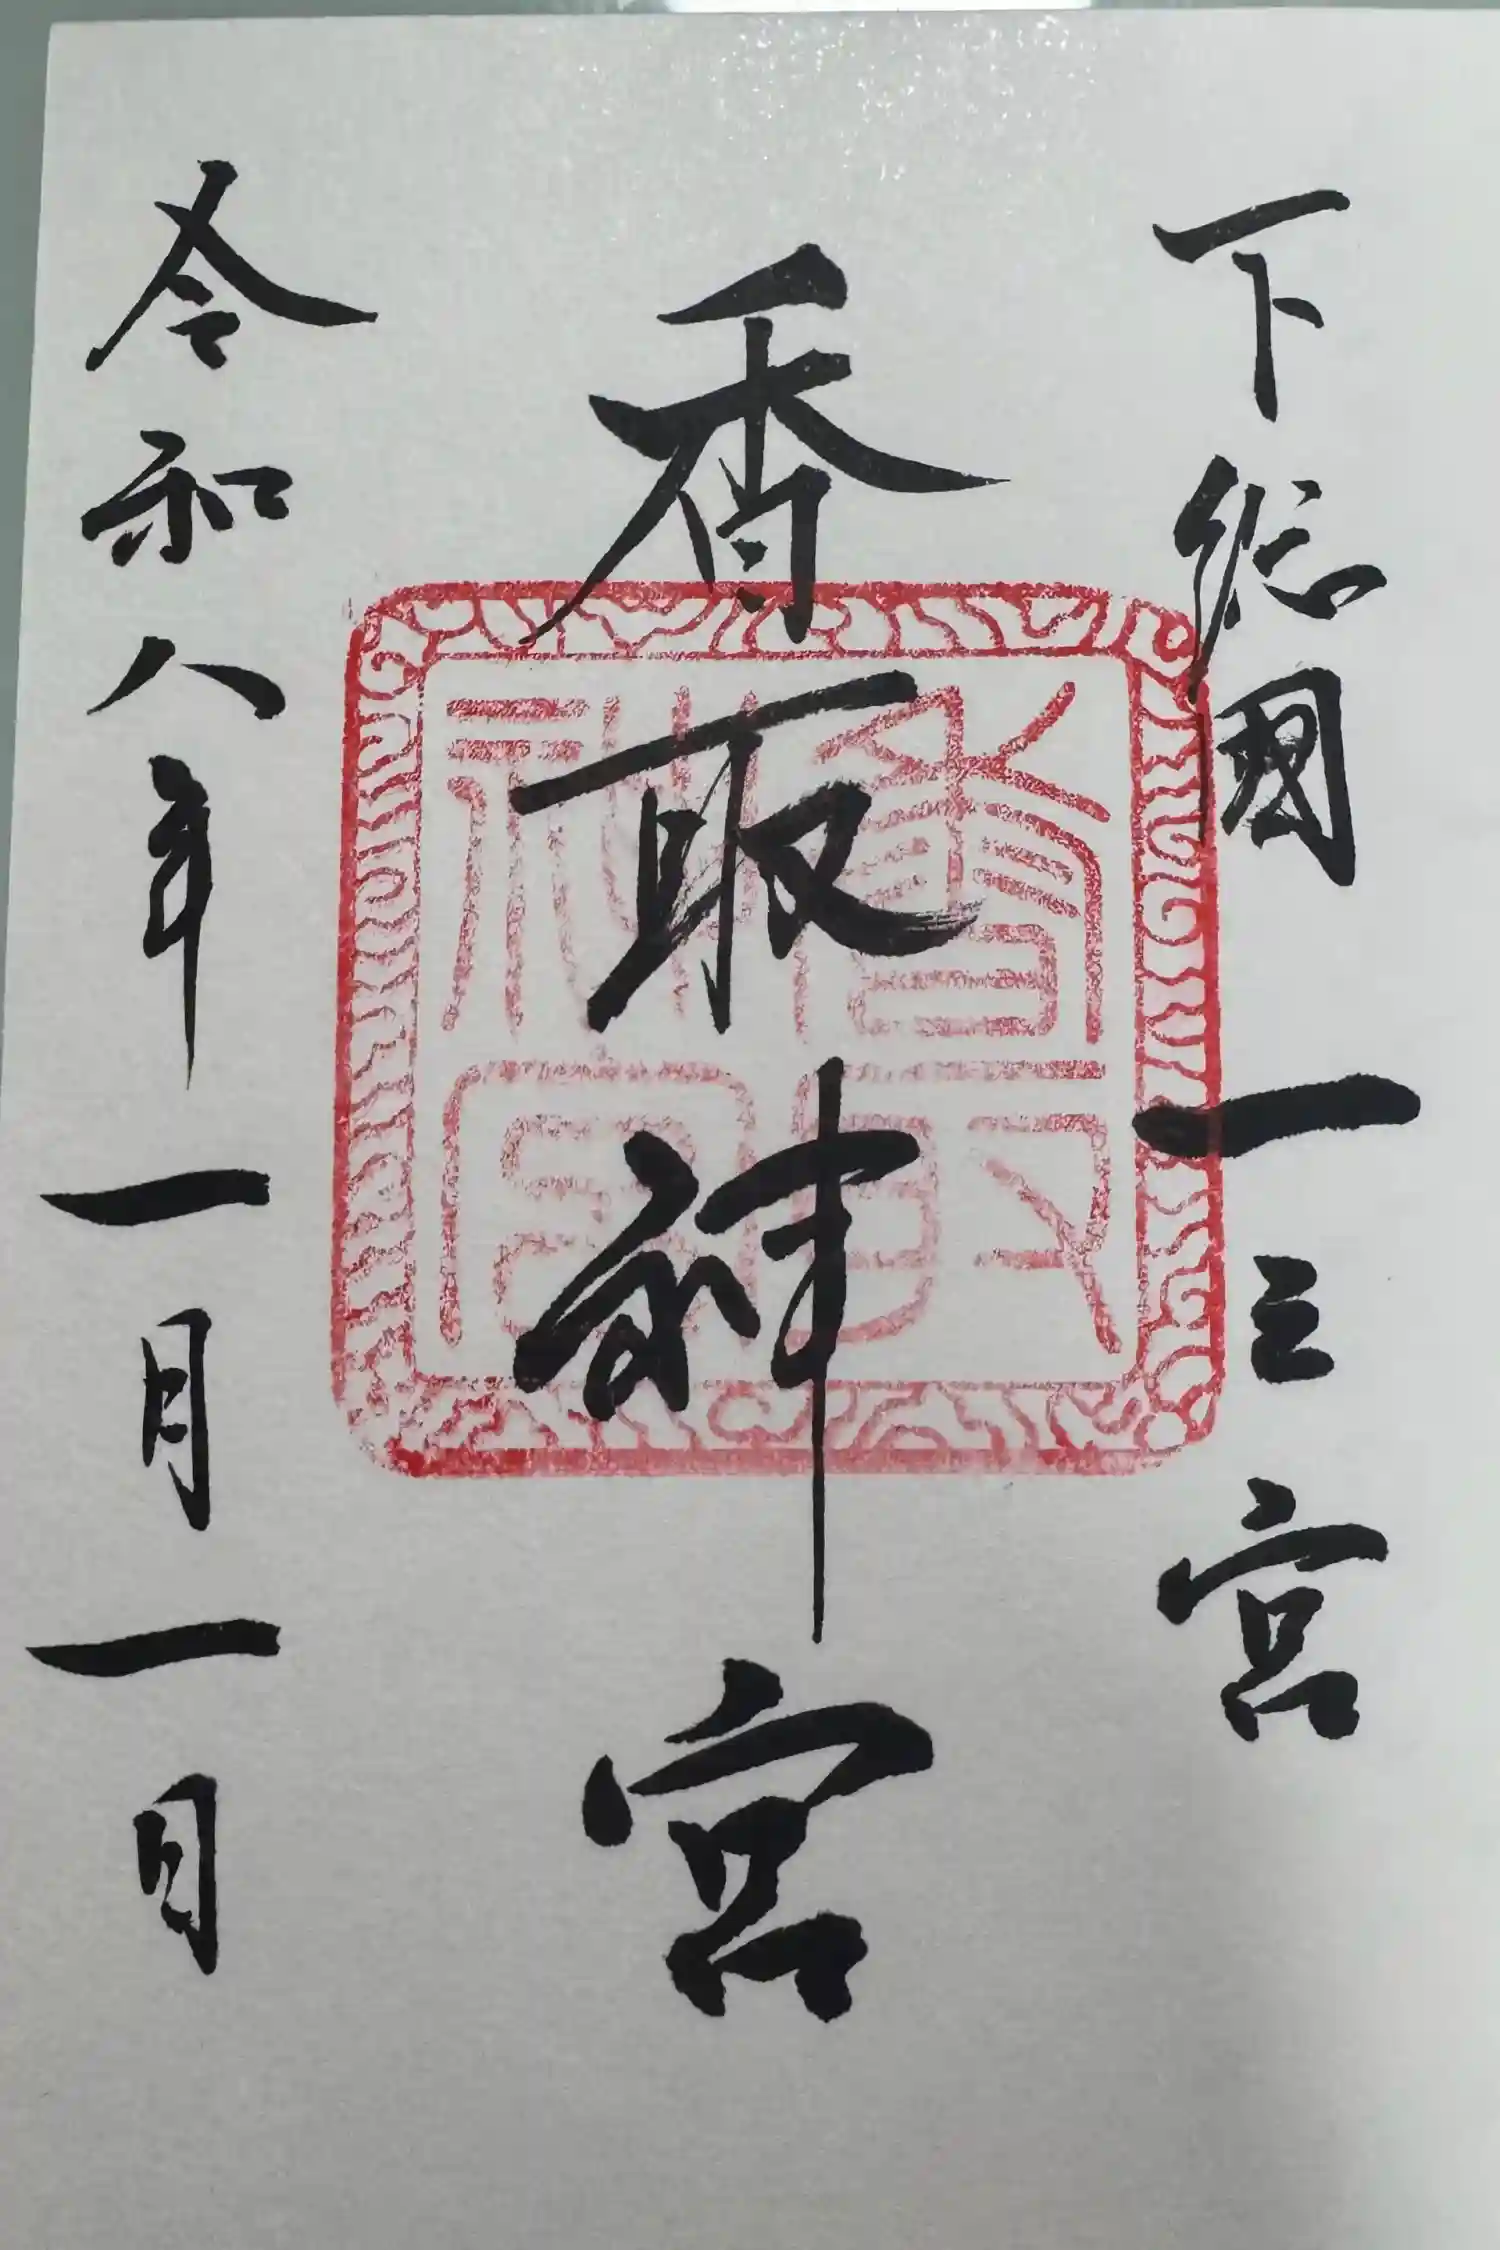 下総國 一之宮
香取神宮
令和八年一月一日
香取神宮